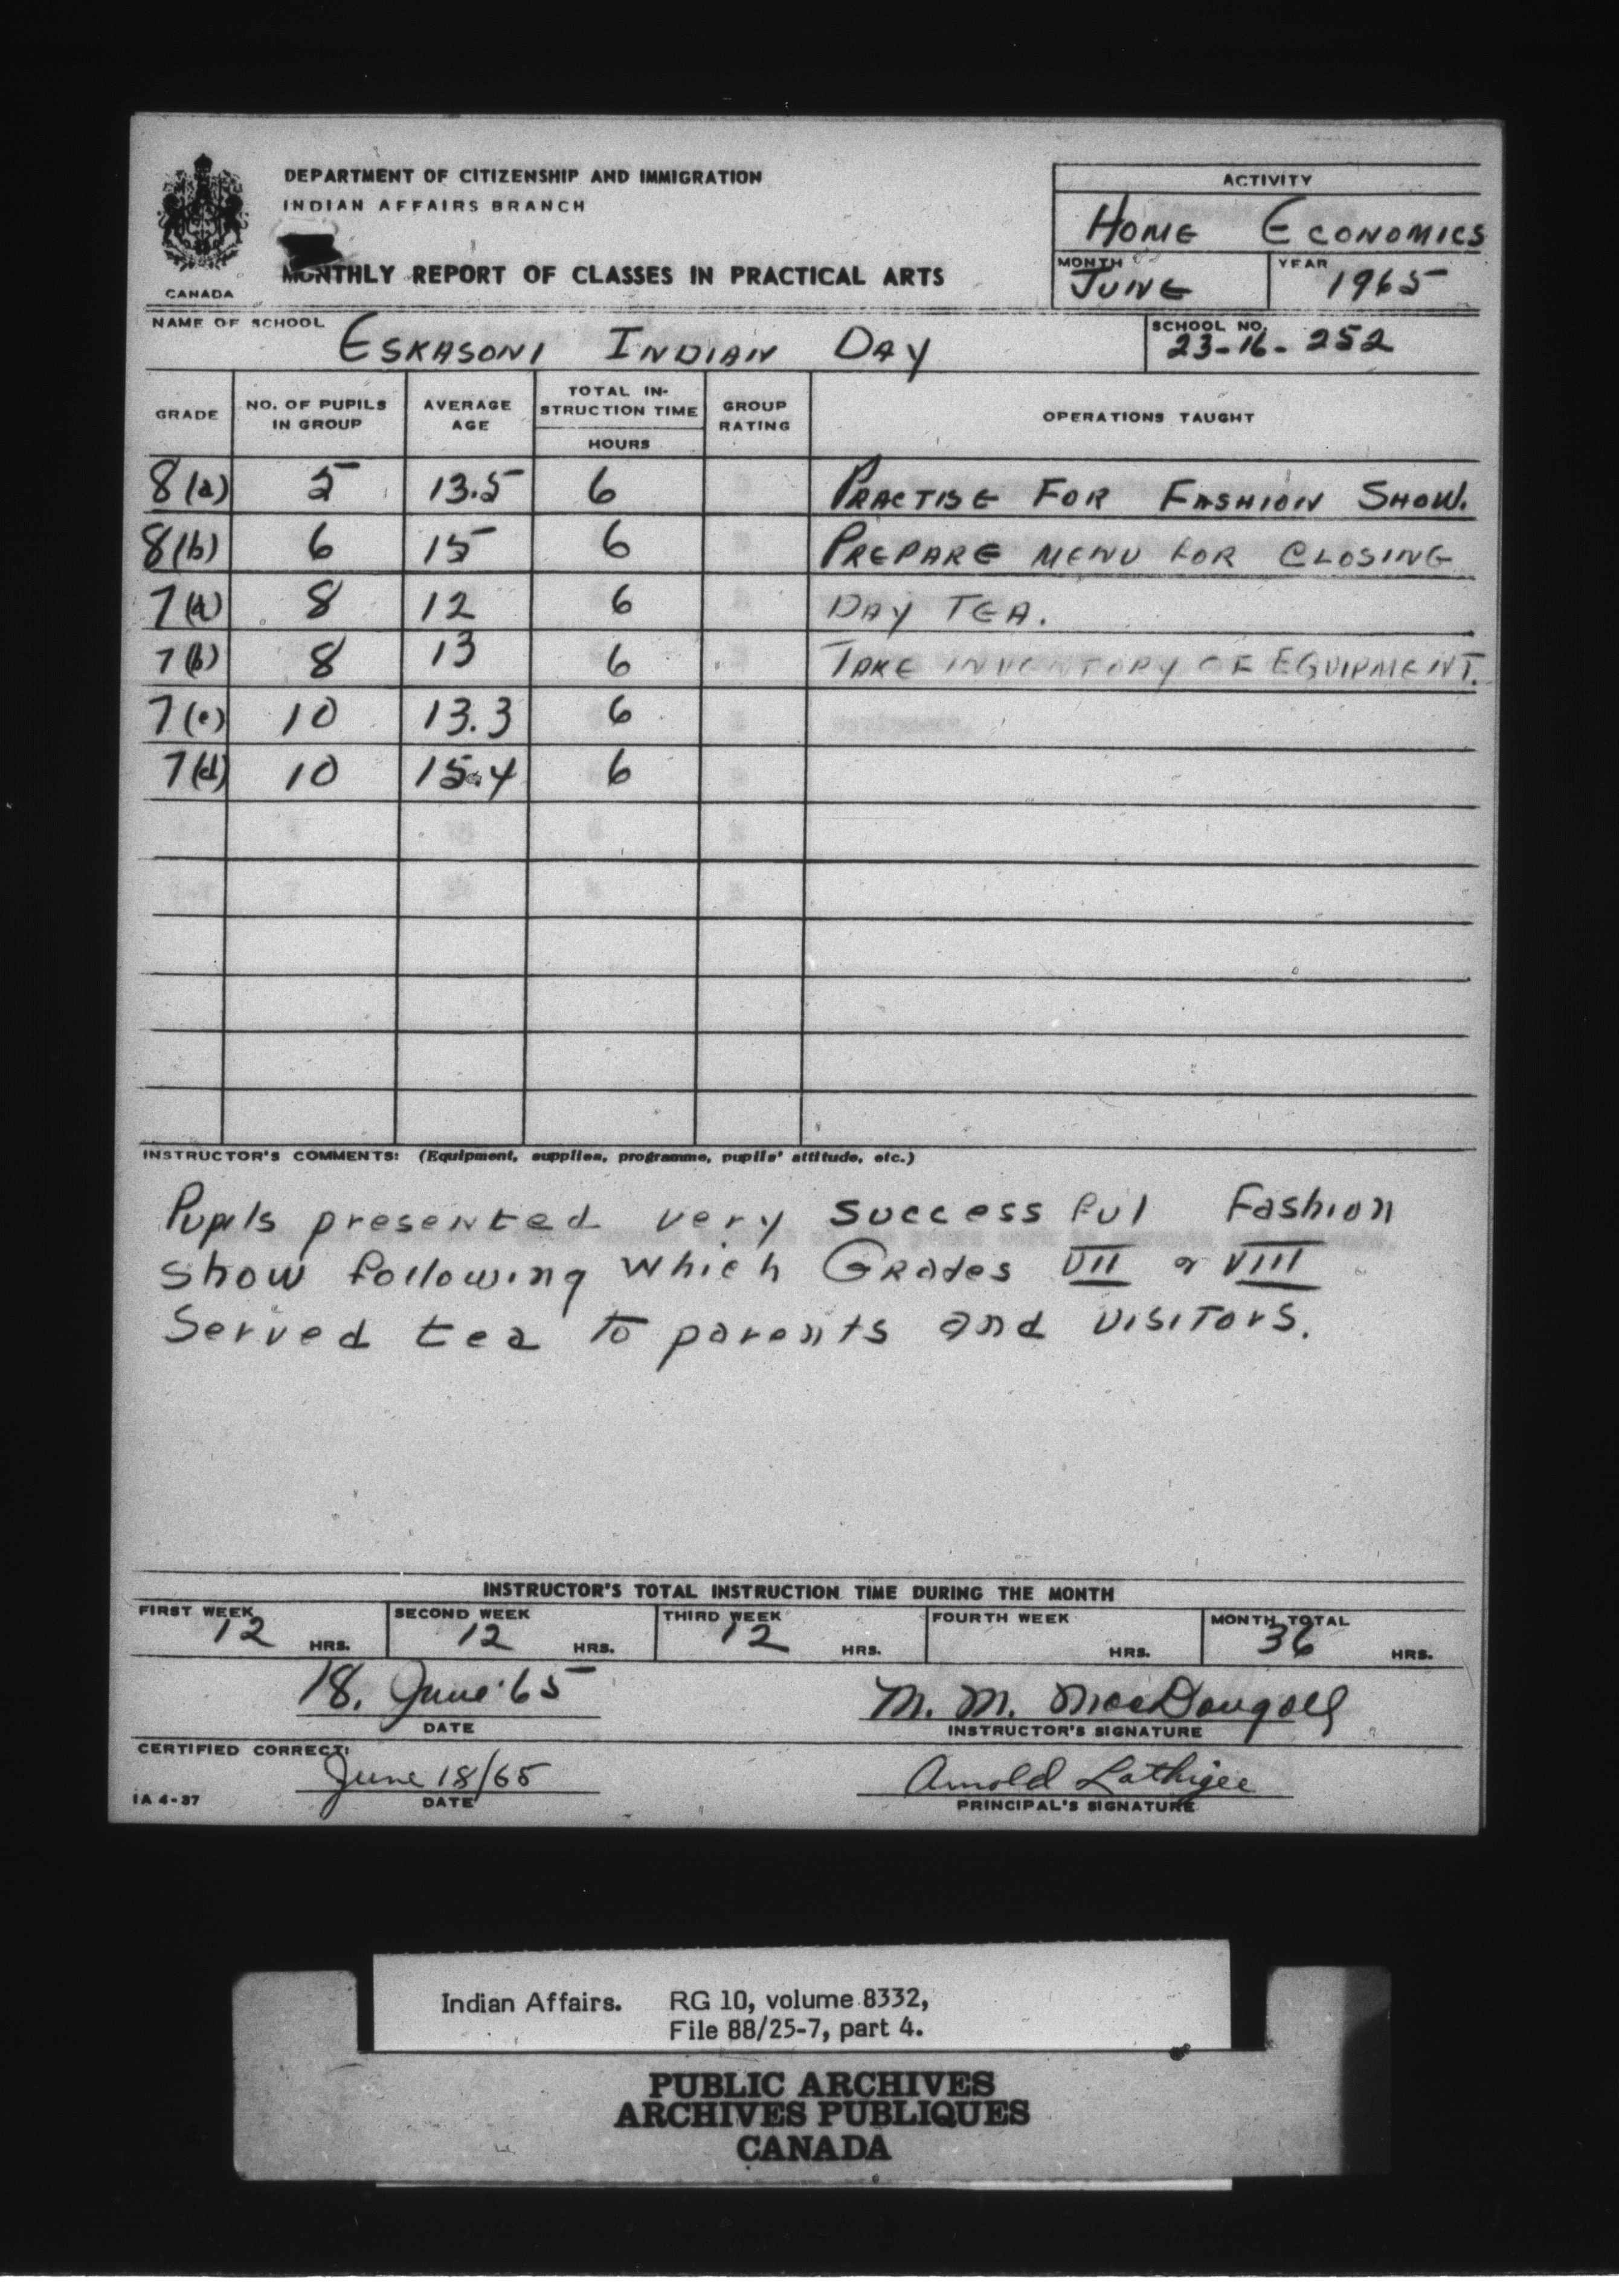 DEPARTMENT OF CITIZENSHIP AND IMMIGRATION
INDIAN AFFAIRS BRANCH
MONTHLY REPORT OF CLASSES IN PRACTICAL ARTS
CANADA
ACTIVITY
HOME ECONOMICS
MONTH YEAR
JUNE 1965
NAME OF SCHOOL
ESKASONI INDIAN DAY
SCHOOL NO.
23-16-252
GRADE NO. OF PUPILS IN GROUP AVERAGE AGE TOTAL IN-STRUCTION TIME HOURS GROUP RATING OPERATIONS TAUGHT
8(a) 5 13.5 6 PRACTISE FOR FASHION SHOW.
8(b) 6 15 6 PREPARE MENU FOR CLOSING
7(a) 8 12 6 DAY TEA.
7(b) 8 13 6 TAKE INVENTORY OF EQUIPMENT.
7(c) 10 13.3 6
7(d) 10 15.4 6
INSTRUCTOR'S COMMENTS: (Equipment, supplies, programme, pupils' attitude, etc.)
Pupils presented very successful Fashion
show following which Grades VII & VIII
Served tea to parents and visitors.
INSTRUCTOR'S TOTAL INSTRUCTION TIME DURING THE MONTH
FIRST WEEK SECOND WEEK THIRD WEEK FOURTH WEEK MONTH TOTAL
12 HRS. 12 HRS. 12 HRS. HRS. 36 HRS.
18. June '65 M. M. MacDougall
DATE INSTRUCTOR'S SIGNATURE
CERTIFIED CORRECT:
June 18/65 Arnold Lathigee
IA 4-37 DATE PRINCIPAL'S SIGNATURE
Indian Affairs. RG 10, volume 8332,
File 88/25-7, part 4.
PUBLIC ARCHIVES
ARCHIVES PUBLIQUES
CANADA